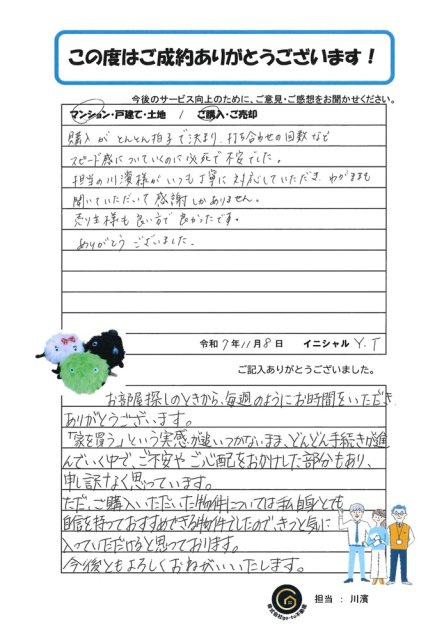 この度はご成約ありがとうございます！
今後のサービス向上のために、ご意見・ご感想をお聞かせください。
マンション・戸建て・土地 / ご購入・ご売却
購入がとんとん拍子で決まり、打ち合わせの回数など
スピード感についていくのに必死で不安でした。
担当の川濱様がいつも丁寧に対応していただき、わがままも
聞いていただいて感謝しかありません。
売り主様も良い方で良かったです。
ありがとうございました。
令和7年11月8日 イニシャル Y.T
ご記入ありがとうございました。
お部屋探しのときから、毎週のようにお時間をいただき
ありがとうございます。
「家を買う」という実感が追いつかないまま、どんどん手続きが進
んでいく中で、ご不安やご心配をおかけした部分もあり、
申し訳なく思っています。
ただ、ご購入いただいた物件については私自身とても
自信を持っておすすめできる物件でしたので、きっと気に
入っていただけると思っております。
今後ともよろしくおねがいいたします。
担当 ： 川濱